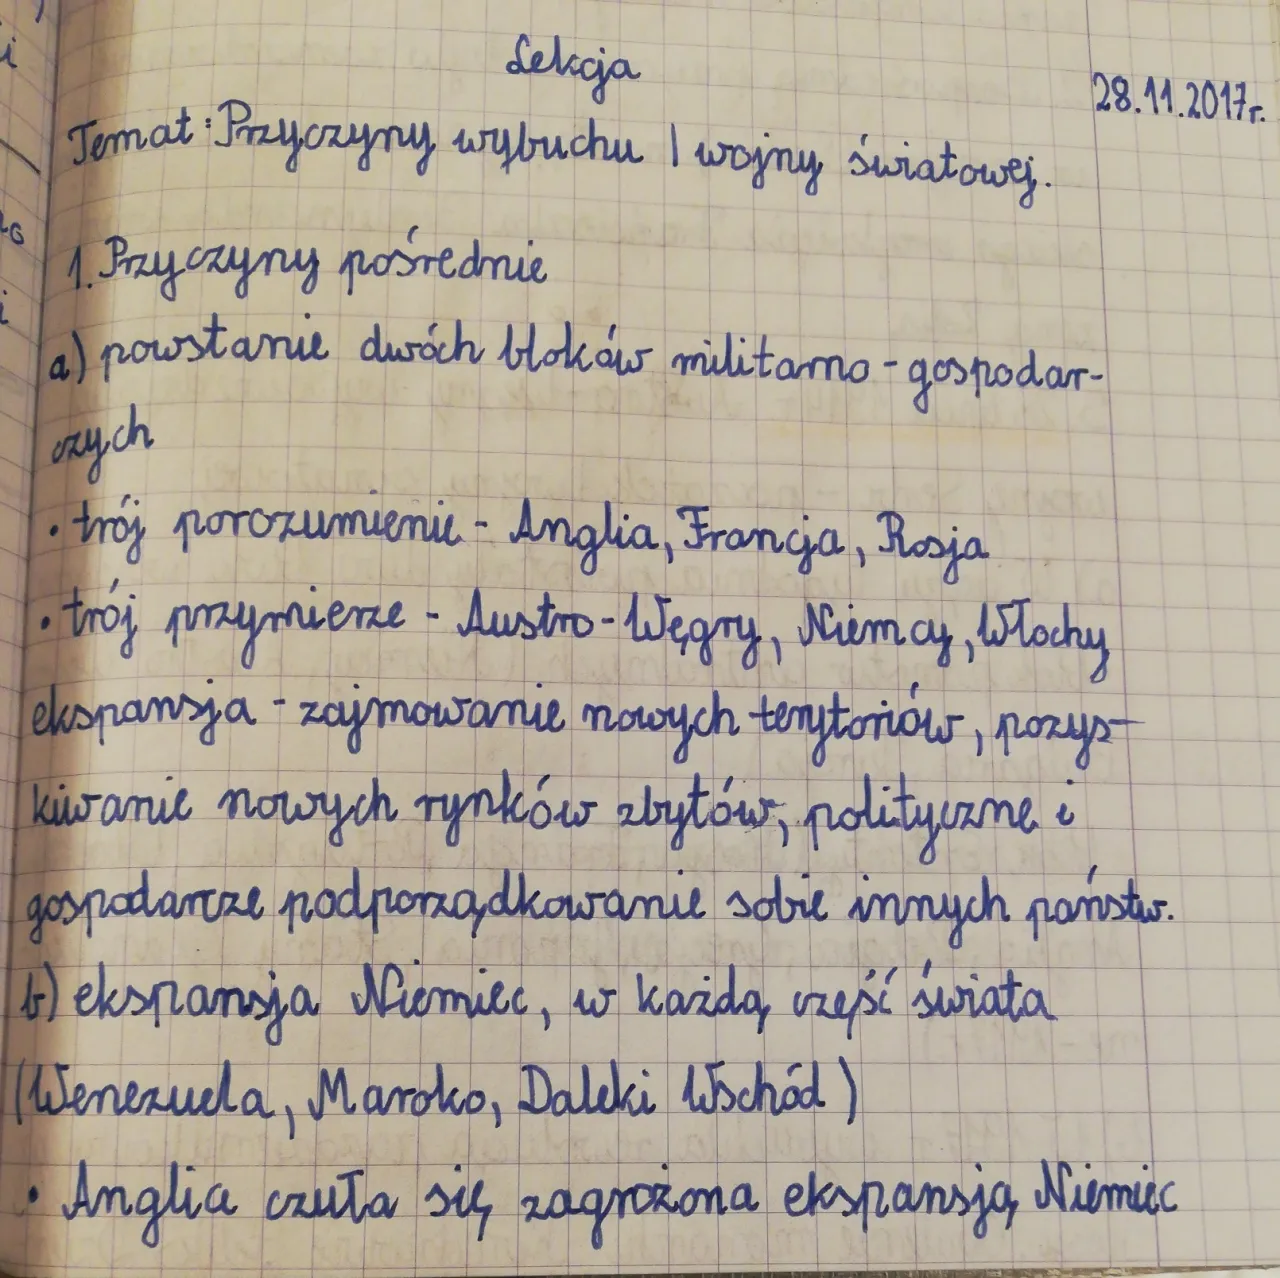 Lekcja
28.11.2017r.
Temat: Przyczyny wybuchu I wojny światowej.
1. Przyczyny pośrednie
a) powstanie dwóch bloków militarno - gospodar-
czych
• trój porozumienie - Anglia, Francja, Rosja
• trój przymierze - Austro-Węgry, Niemcy, Włochy
ekspansja - zajmowanie nowych terytoriów, pozys-
kiwanie nowych rynków zbytów, polityczne i
gospodarcze podporządkowanie sobie innych państw.
b) ekspansja Niemiec, w każdą część świata
(Wenezuela, Maroko, Daleki Wschód)
• Anglia czuła się zagrożona ekspansją Niemiec